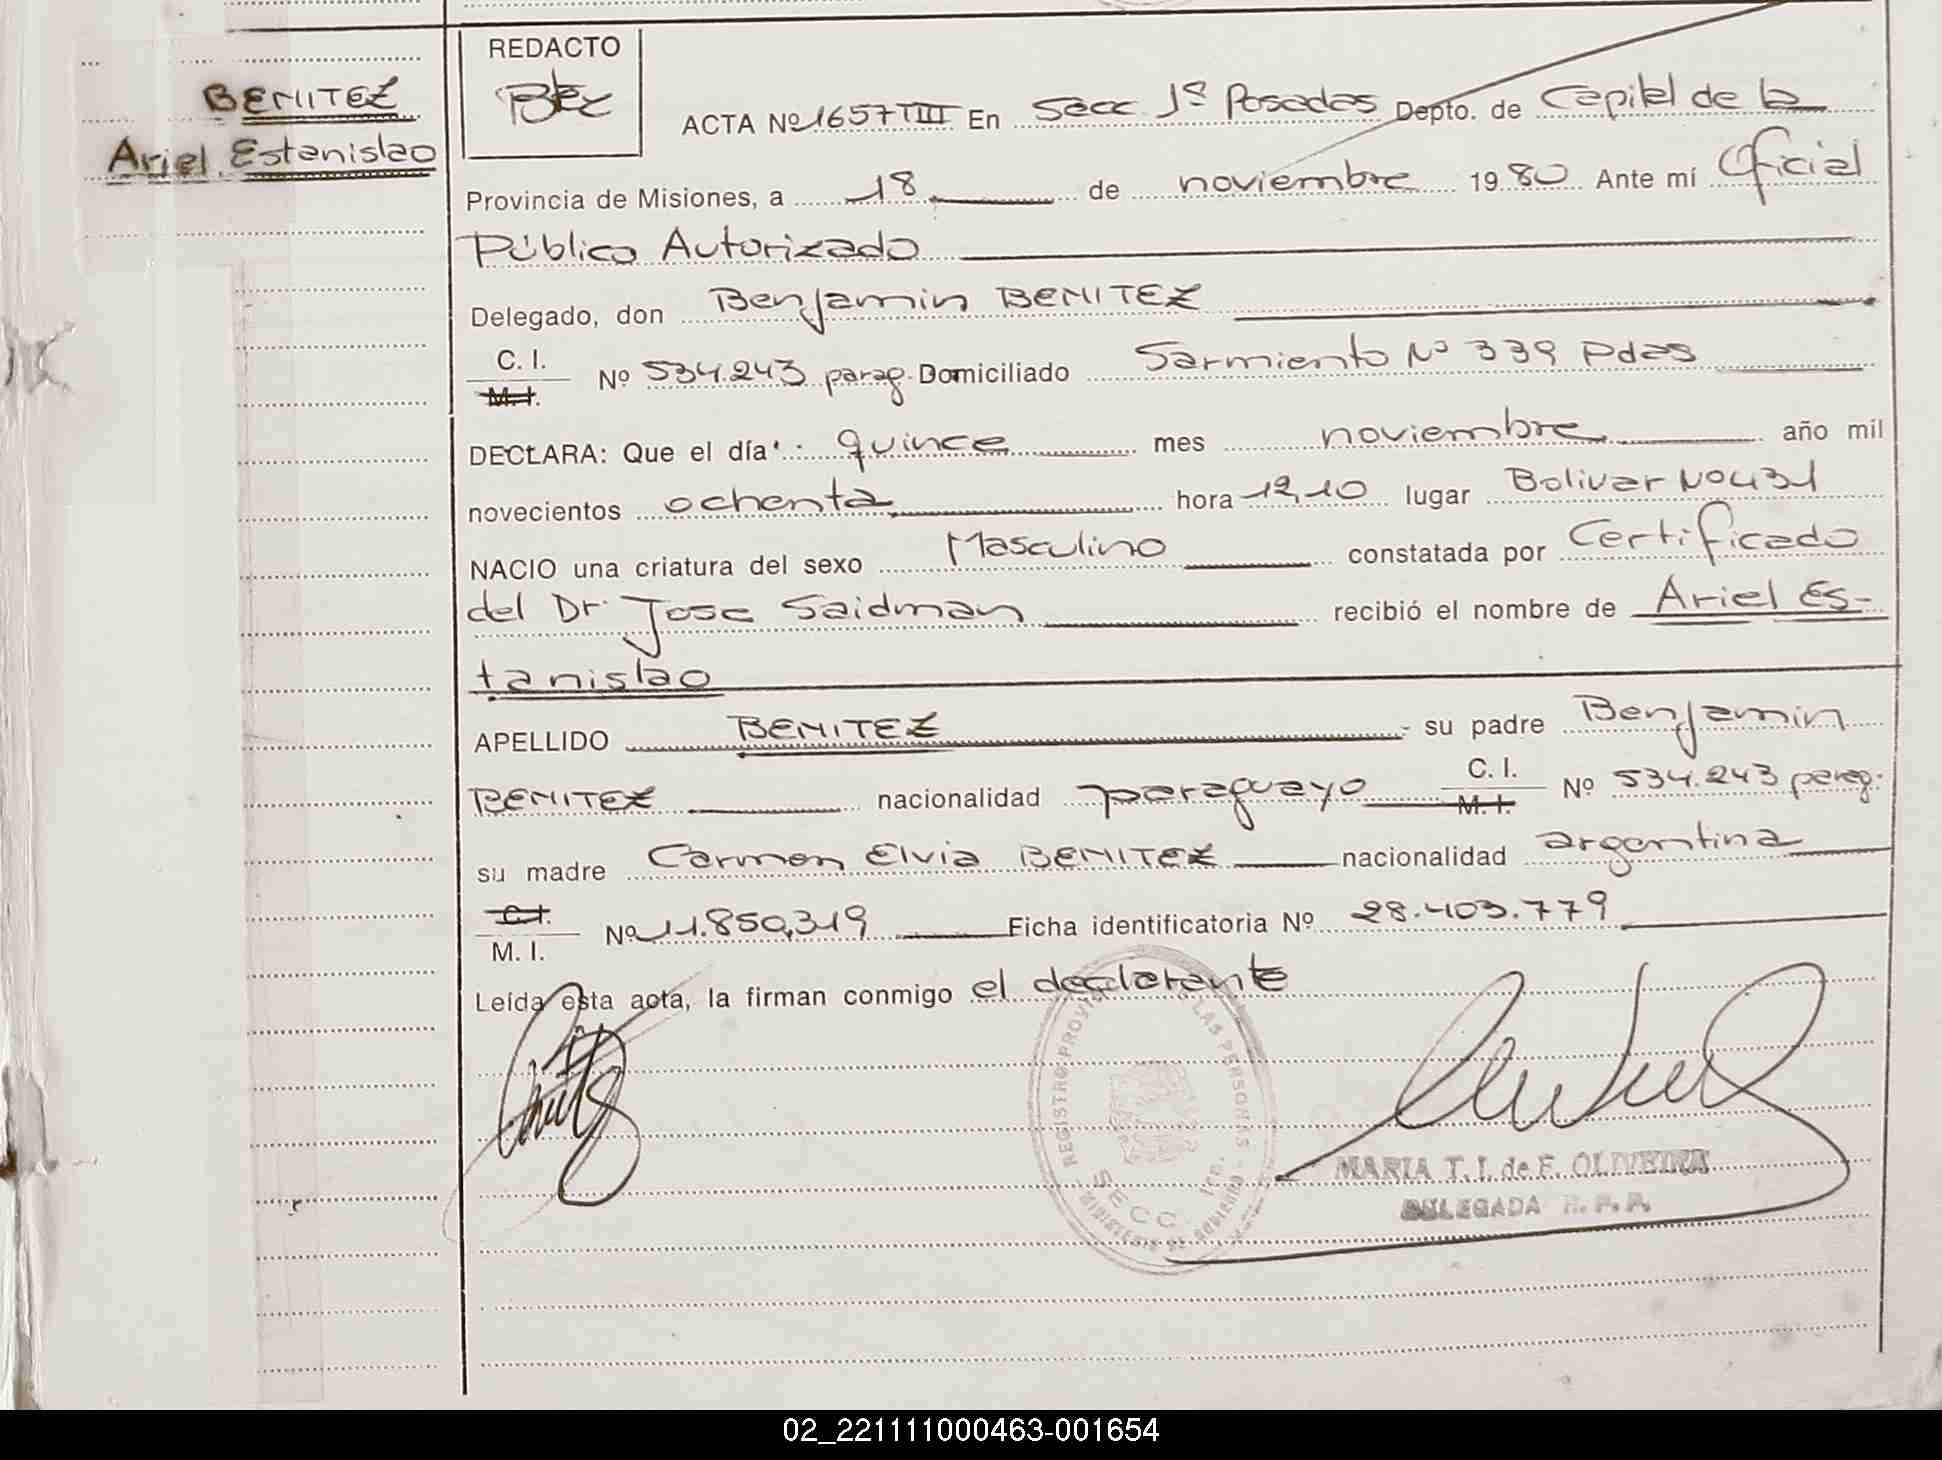 BENITEZ
Ariel Estanislao
REDACTO
ACTA Nº 1657 TIII En Secc. 1ª Posadas Depto. de Capital de la
Provincia de Misiones, a 18 de noviembre 1980 Ante mí Oficial
Público Autorizado
Delegado, don Benjamin BENITEZ
C. I.
M. I.
Nº 534.243 parag. Domiciliado Sarmiento Nº 339 Pdas
DECLARA: Que el día quince mes noviembre año mil
novecientos ochenta hora 12,10 lugar Bolivar Nº 431
NACIO una criatura del sexo Masculino constatada por Certificado
del Dr. Jose Saidman recibió el nombre de Ariel Es-
tanislao
APELLIDO BENITEZ su padre Benjamin
BENITEZ nacionalidad paraguayo C. I. M. I. Nº 534.243 parag.
su madre Carmen Elvia BENITEZ nacionalidad argentina
C. I.
M. I.
Nº 11.850.319 Ficha identificatoria Nº 28.403.779
Leída esta acta, la firman conmigo el declarante
REGISTRO PROVI LAS PERSONAS
SECC. 1ra.
MINISTERIO DE GOBIERNO
MARIA T. I. de F. OLIVEIRA
DELEGADA R. P. P.
02_221111000463-001654